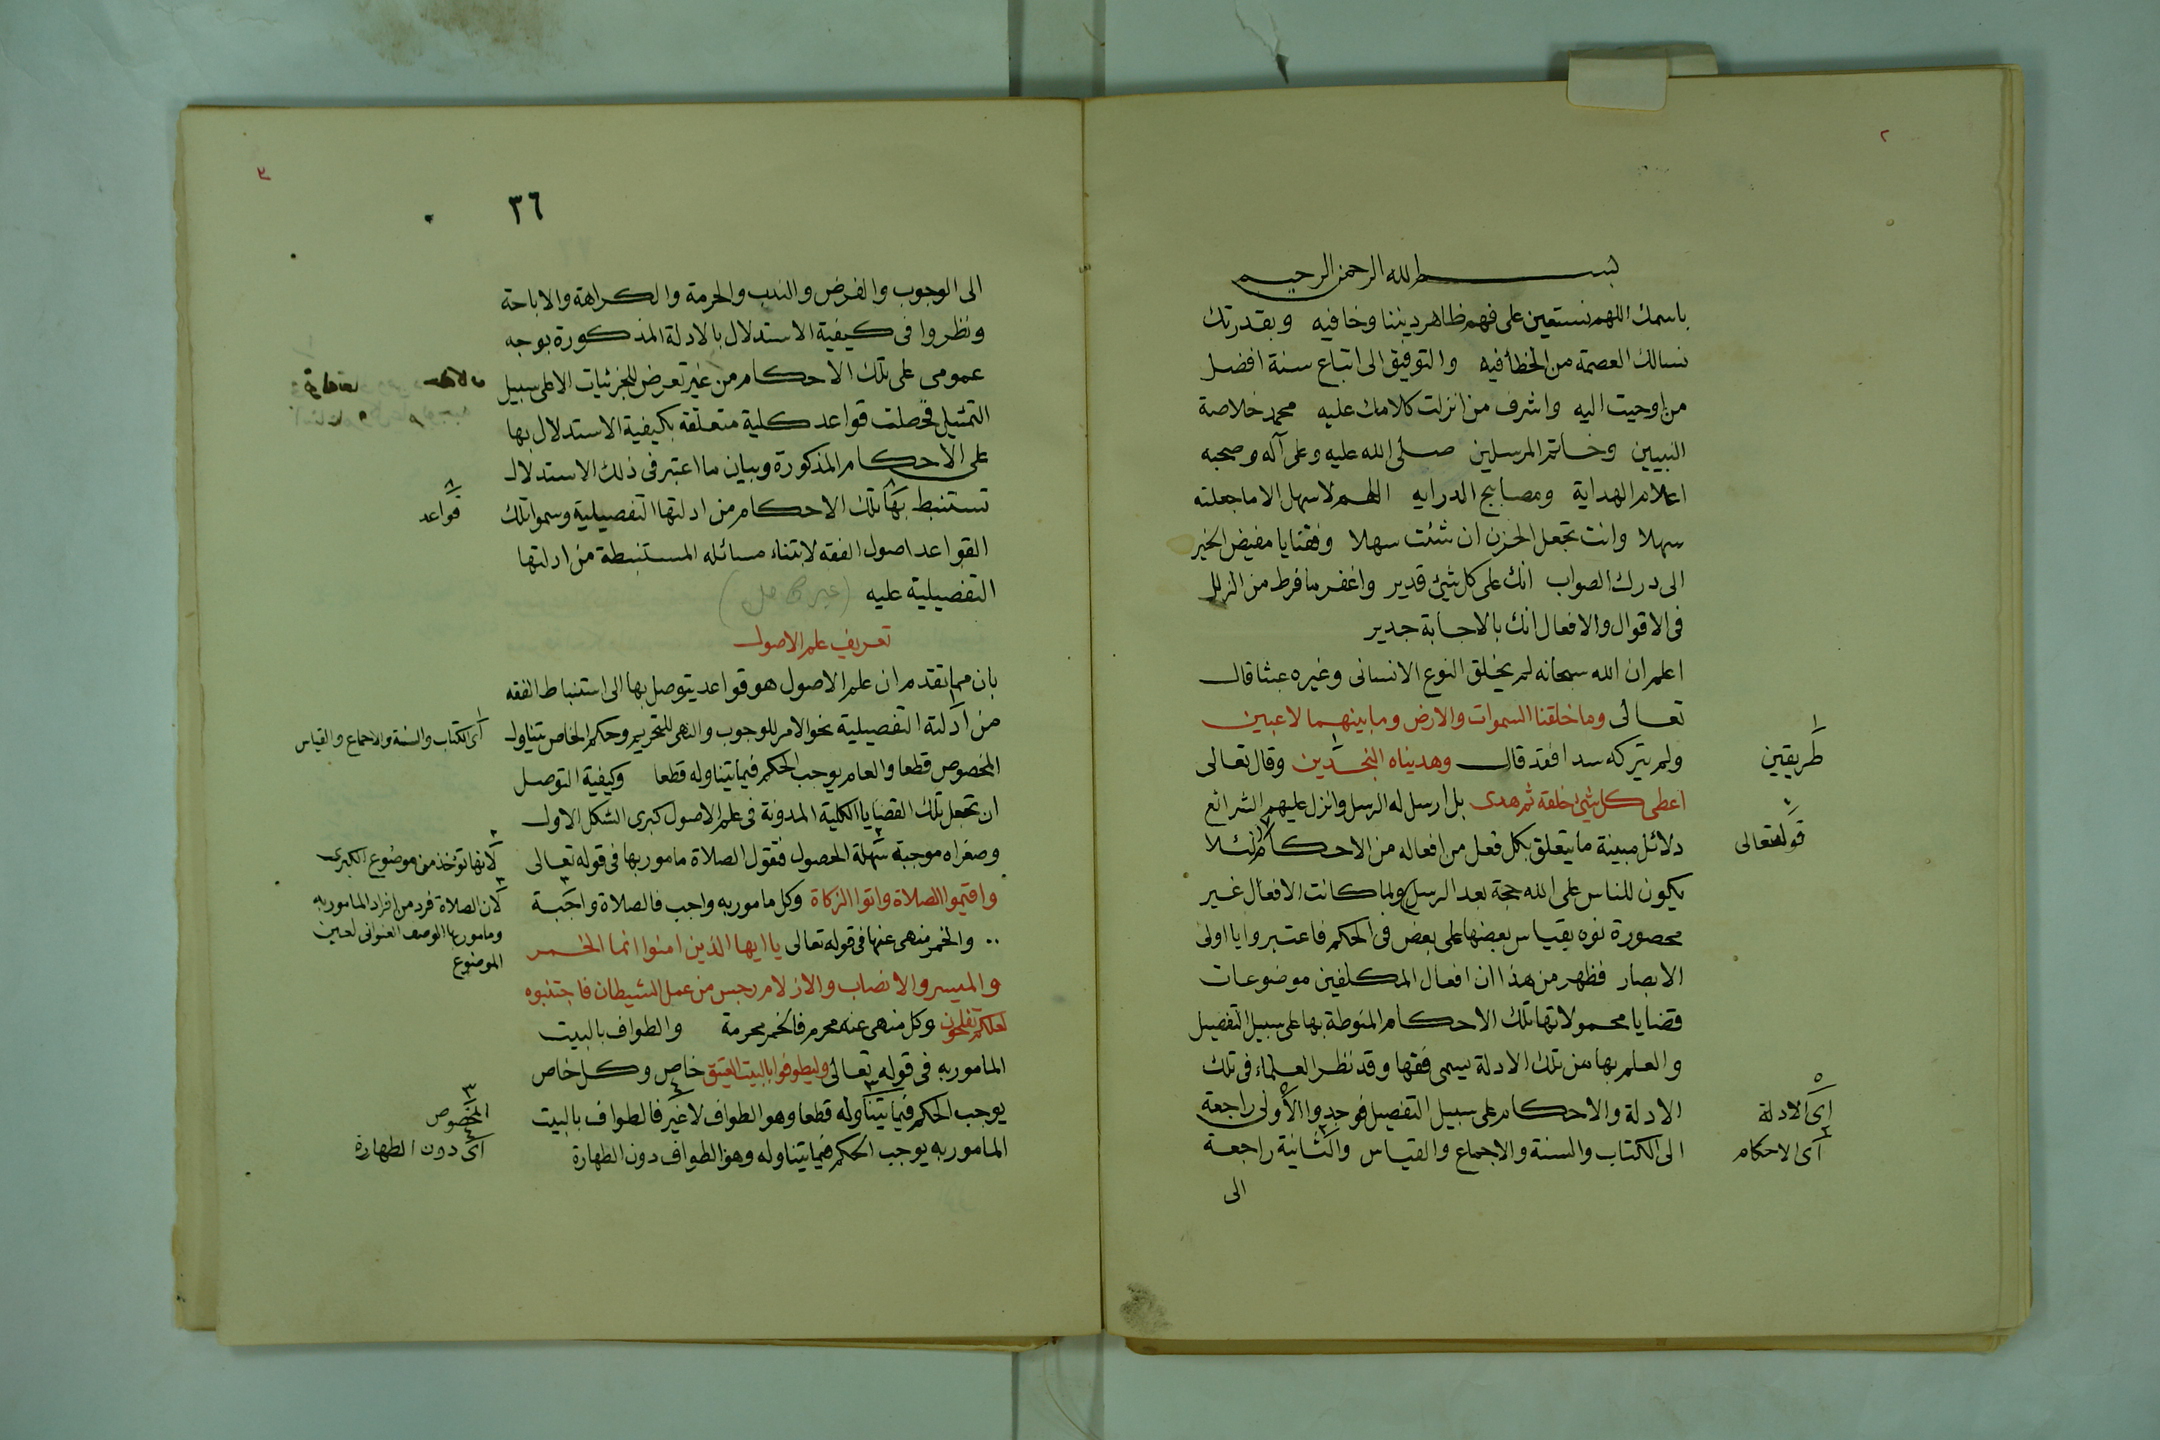 ٢
بسم الله الرحمن الرحيم
باسمك اللهم نستعين على فهم ظاهر ديننا وخافيه وبقدرتك
نسالك العصمة من الخطأ فيه والتوفيق الى اتباع سنة افضل
من اوحيت اليه واشرف من انزلت كلامك عليه محمد خلاصة
النبيين وخاتم المرسلين صلى الله عليه وعلى آله وصحبه
اعلام الهداية ومصابيح الدرايه اللهم لا سهل الا ما جعلته
سهلا وانت تجعل الحزن ان شئت سهلا وفقنا يا مفيض الخير
الى درك الصواب انك على كل شئ قدير واغفر ما فرط من الزلل
فى الاقوال والافعال انك بالاجابة جدير
اعلم ان الله سبحانه لم يخلق النوع الانسانى وغيره عبثا قال
تعالى وما خلقنا السموات والارض وما بينهما لاعبين
ولم يتركه سدا فقد قال وهديناه النجدين وقال تعالى
اعطى كل شئ خلقه ثم هدى بل ارسل له الرسل وانزل عليهم الشرائع
دلائل مبينة ما يتعلق بكل فعل من افعاله من الاحكام لئلا
يكون للناس على الله حجة بعد الرسل ولما كانت الافعال غير
محصورة نوه بقياس بعضها على بعض فى الحكم فاعتبروا يا اولى
الابصار فظهر من هذا ان افعال المكلفين موضوعات
قضايا محمولاتها تلك الاحكام المنوطة بها على سبيل التفصيل
والعلم بها من تلك الادلة يسمى فقها وقد نظر العلماء فى تلك
الادلة والاحكام على سبيل التفصيل فوجدوا الأولى راجعة
الى الكتاب والسنة والاجماع والقياس والثانية راجعة
الى
١
طريقين
قوله تعالى
٥
اى الادلة
٦
اى الاحكام
٣
٣٦
الى الوجوب والفرض والندب والحرمة والكراهة والاباحة
ونظروا فى كيفية الاستدلال بالادلة المذكورة بوجه
عمومى على تلك الاحكام من غير تعرض للجزئيات الا على سبيل
التمثيل فحصلت قواعد كلية متعلقة بكيفية الاستدلال بها
على الاحكام المذكورة وبيان ما اعتبر فى ذلك الاستدلال
تستنبط بها تلك الاحكام من ادلتها التفصيلية وسموا تلك
القواعد اصول الفقه لابتناء مسائله المستنبطة من ادلتها
التفصيلية عليه
تعريف علم الاصول
بان مما تقدم ان علم الاصول هو قواعد يتوصل بها الى استنباط الفقه
من ادلته التفصيلية نحو الامر للوجوب والنهى للتحريم وحكم الخاص تناول
المخصوص قطعا والعام يوجب الحكم فيما يتناوله قطعا وكيفية التوصل
ان تجعل تلك القضايا الكلية المدونة فى علم الاصول كبرى الشكل الاول
وصغراه موجبة سهلة الحصول فتقول الصلاة مامور بها فى قوله تعالى
واقيموا الصلاة واتوا الزكاة وكل مامور به واجب فالصلاة واجبة
.. والخمر منهى عنها فى قوله تعالى يا ايها الذين امنوا انما الخمر
والميسر والانصاب والازلام رجس من عمل الشيطان فاجتنبوه
لعلكم تفلحون وكل منهى عنه محرم فالخمر محرمة والطواف بالبيت
المامور به فى قوله تعالى وليطوفوا بالبيت العتيق خاص وكل خاص
يوجب الحكم فيما يتناوله قطعا وهو الطواف لا غير فالطواف بالبيت
المامور به يوجب الحكم فيما يتناوله وهو الطواف دون الطهارة
٨
قواعد
١
اى الكتاب والسنة والاجماع والقياس
٢
لانها تؤخذ من موضوع الكبرى
٣
لان الصلاة فرد من افراد المامور به
ومامور بها الوصف العنوانى لعين
الموضوع
٣
المخصوص
٤
اى دون الطهارة